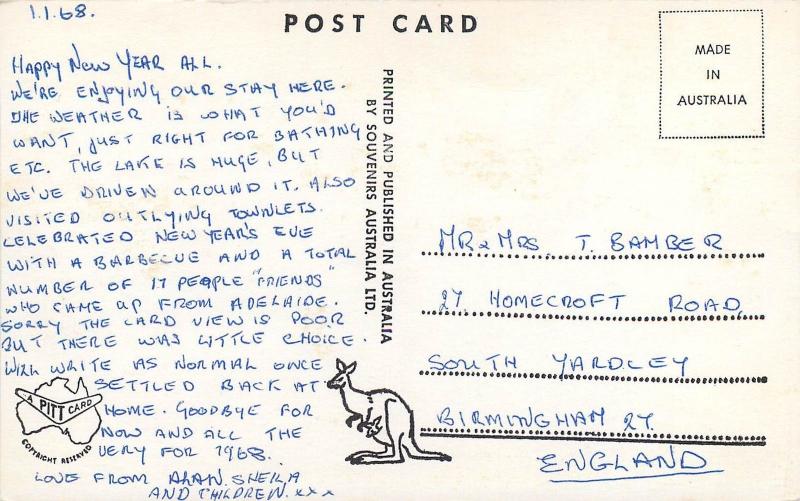 1.1.68.
POST CARD
MADE
IN
AUSTRALIA
HAPPY NEW YEAR ALL.
WE'RE ENJOYING OUR STAY HERE.
THE WEATHER IS WHAT YOU'D
WANT, JUST RIGHT FOR BATHING
ETC. THE LAKE IS HUGE, BUT
WE'VE DRIVEN AROUND IT. ALSO
VISITED OUTLYING TOWNLETS.
CELEBRATED NEW YEAR'S EVE
WITH A BARBECUE AND A TOTAL
NUMBER OF 17 PEOPLE "FRIENDS"
WHO CAME UP FROM ADELAIDE.
SORRY THE CARD VIEW IS POOR
BUT THERE WAS LITTLE CHOICE.
WILL WRITE AS NORMAL ONCE
SETTLED BACK AT
HOME. GOODBYE FOR
NOW AND ALL THE
VERY FOR 1968.
LOVE FROM ALAN, SHEILA
AND CHILDREN. xxx
A PITT CARD
COPYRIGHT RESERVED
PRINTED AND PUBLISHED IN AUSTRALIA
BY SOUVENIRS AUSTRALIA LTD.
MR & MRS. T. BAMBER
27 HOMECROFT ROAD,
SOUTH YARDLEY
BIRMINGHAM 27.
ENGLAND